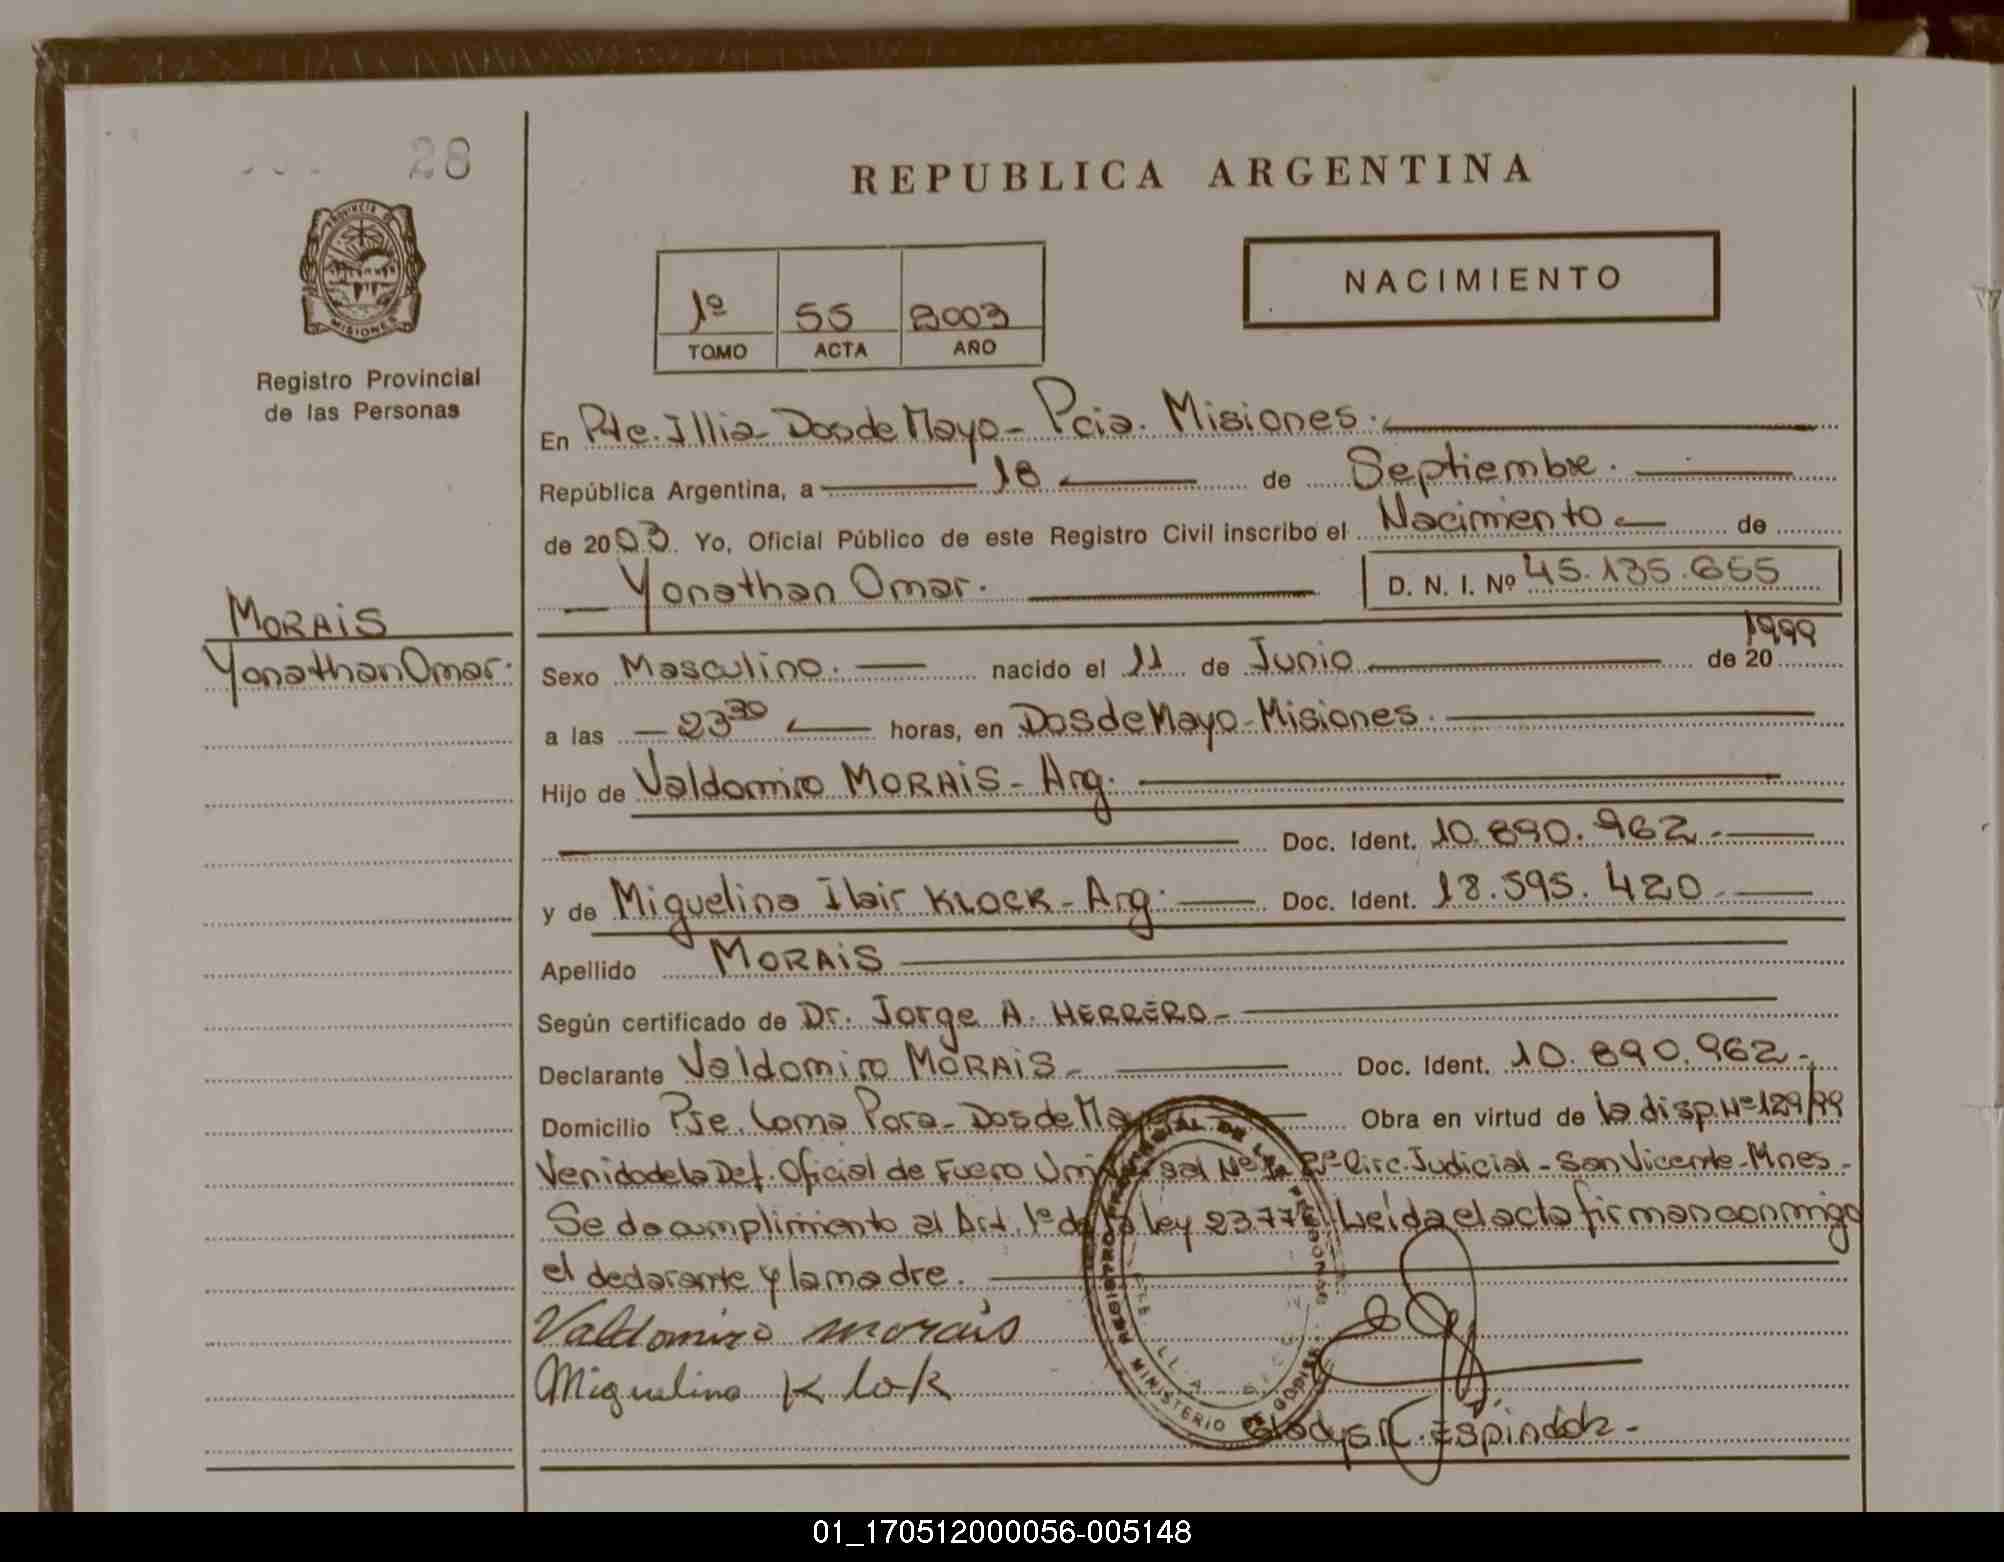 28
PROVINCIA DE
MISIONES
Registro Provincial
de las Personas
MORAIS
Yonathan Omar.
REPUBLICA ARGENTINA
1º 55 2003
TOMO ACTA AÑO
NACIMIENTO
En Pte. Illia Dos de Mayo - Pcia. Misiones.
República Argentina, a 18 de Septiembre.
de 2003. Yo, Oficial Público de este Registro Civil inscribo el Nacimiento de
Yonathan Omar. D. N. I. Nº 45.135.655
Sexo Masculino. nacido el 11 de Junio de 20 1999
a las 23 30 horas, en Dos de Mayo - Misiones.
Hijo de Valdomiro MORAIS - Arg.
Doc. Ident. 10.890.962.-
y de Miguelina Ilair KLOCK - Arg. Doc. Ident. 18.595.420.-
Apellido MORAIS
Según certificado de Dr. Jorge A. HERRERO -
Declarante Valdomiro MORAIS - Doc. Ident. 10.890.962.-
Domicilio Pje. Loma Pora - Dos de Mayo Obra en virtud de la disp. Nº 129/99
Venido de la Def. Oficial de Fuero Universal Nº 2ª Circ. Judicial - San Vicente - Mnes -
Se da cumplimiento al Art. 1º de la ley 23.776. Leída el acta firman conmigo
el declarante y la madre.
Valdomiro morais
Miguelina K lok
REGISTRO PROVINCIAL DE LAS PERSONAS
MINISTERIO DE GOBIERNO
Gladys R. Espindola -
01_170512000056-005148